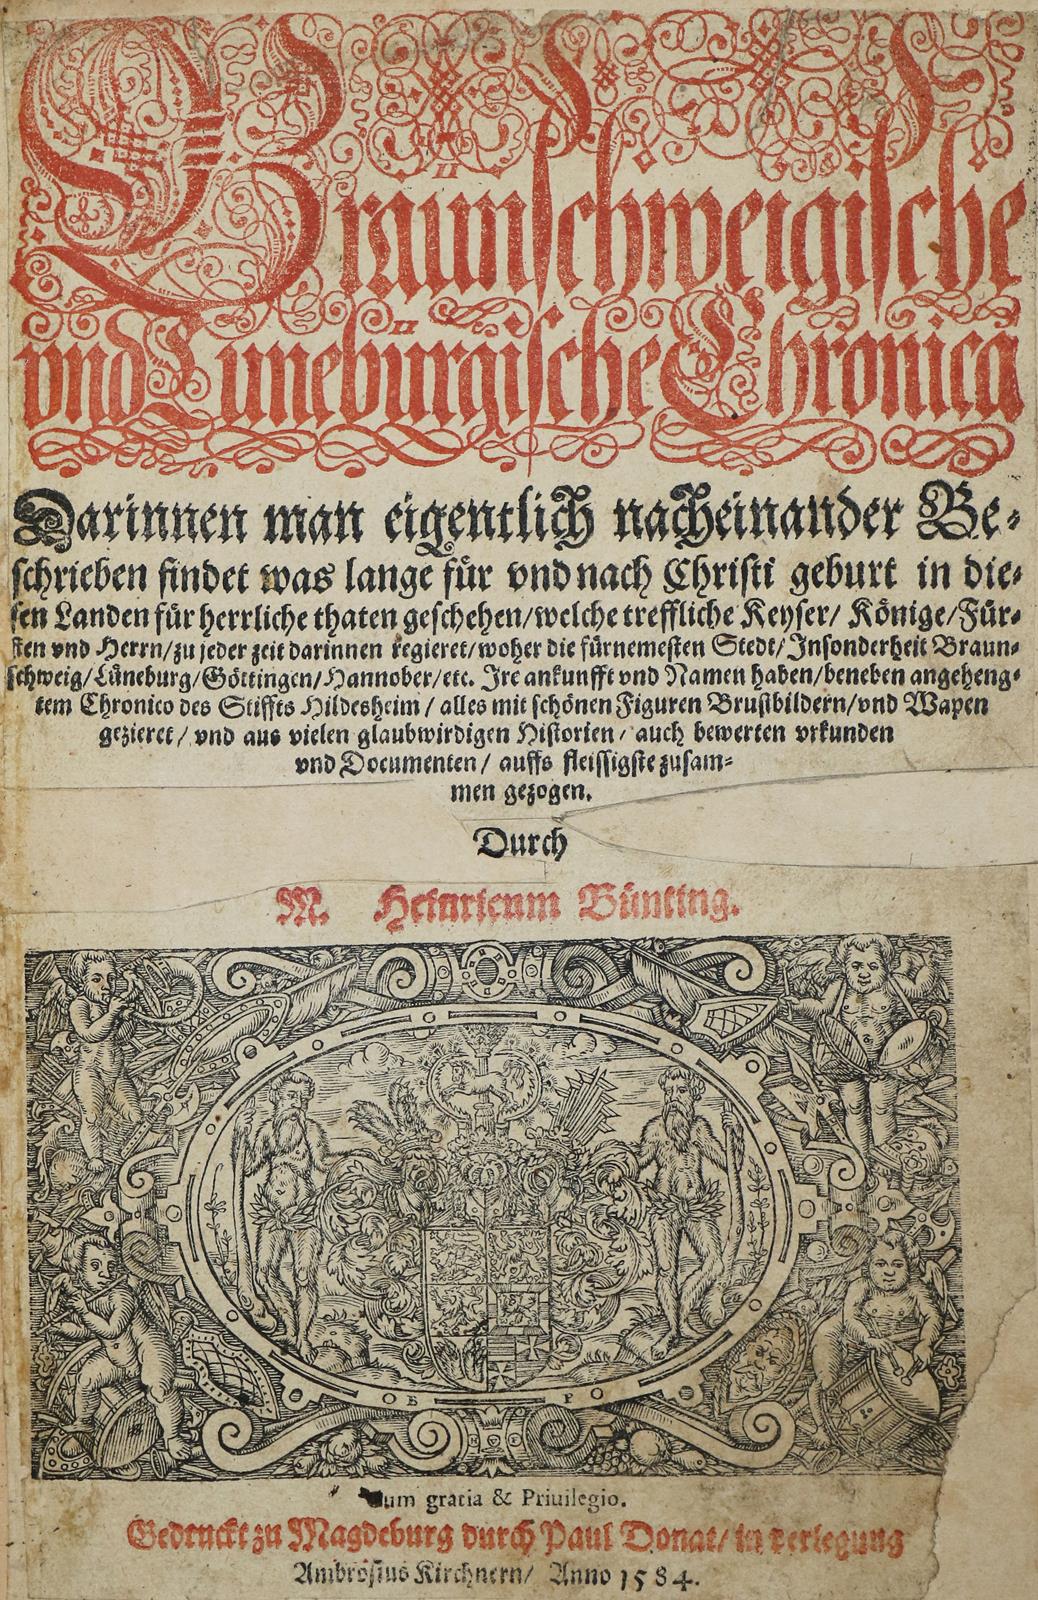 Braunschweigische
vnd Lüneburgische Chronica
Darinnen man eigentlich nacheinander Be⸗
schrieben findet was lange für vnd nach Christi geburt in die⸗
sen Landen für herrliche thaten geschehen/welche treffliche Keyser/ Könige/Für⸗
sten vnd Herrn/zu jeder zeit darinnen regieret/woher die fürnemesten Stedt/Insonderheit Braun⸗
schweig/Lüneburg/Göttingen/Hannober/etc. Ire ankunfft vnd Namen haben/beneben angeheng⸗
tem Chronico des Stiffts Hildesheim / alles mit schönen Figuren Brustbildern/vnd Wapen
gezieret/ vnd aus vielen glaubwirdigen Historien/ auch bewerten vrkunden
vnd Documenten/ auffs fleissigste zusam⸗
men gezogen.
Durch
M. Heinricum Bünting.
B F
Cum gratia & Priuilegio.
Gedruckt zu Magdeburg durch Paul Donat/ in verlegung
Ambrosius Kirchnern/ Anno 1584.